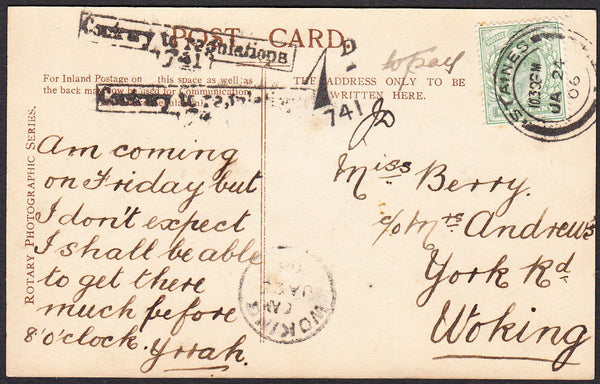 POST CARD.
Contrary to regulations
741
For Inland Postage on this space as well as
the back may now be used for Communication
Contrary to regulations
THE ADDRESS ONLY TO BE
WRITTEN HERE.
1D
741
to pay
STAINES
10.30PM
JA 24
06
ROTARY PHOTOGRAPHIC SERIES.
Am coming
on Friday but
I don't expect
I shall be able
to get there
much before
8 o'clock. Yrrah.
Miss Berry.
c/o Mrs Andrews
York Rd
Woking
WOKING
JA 25
06